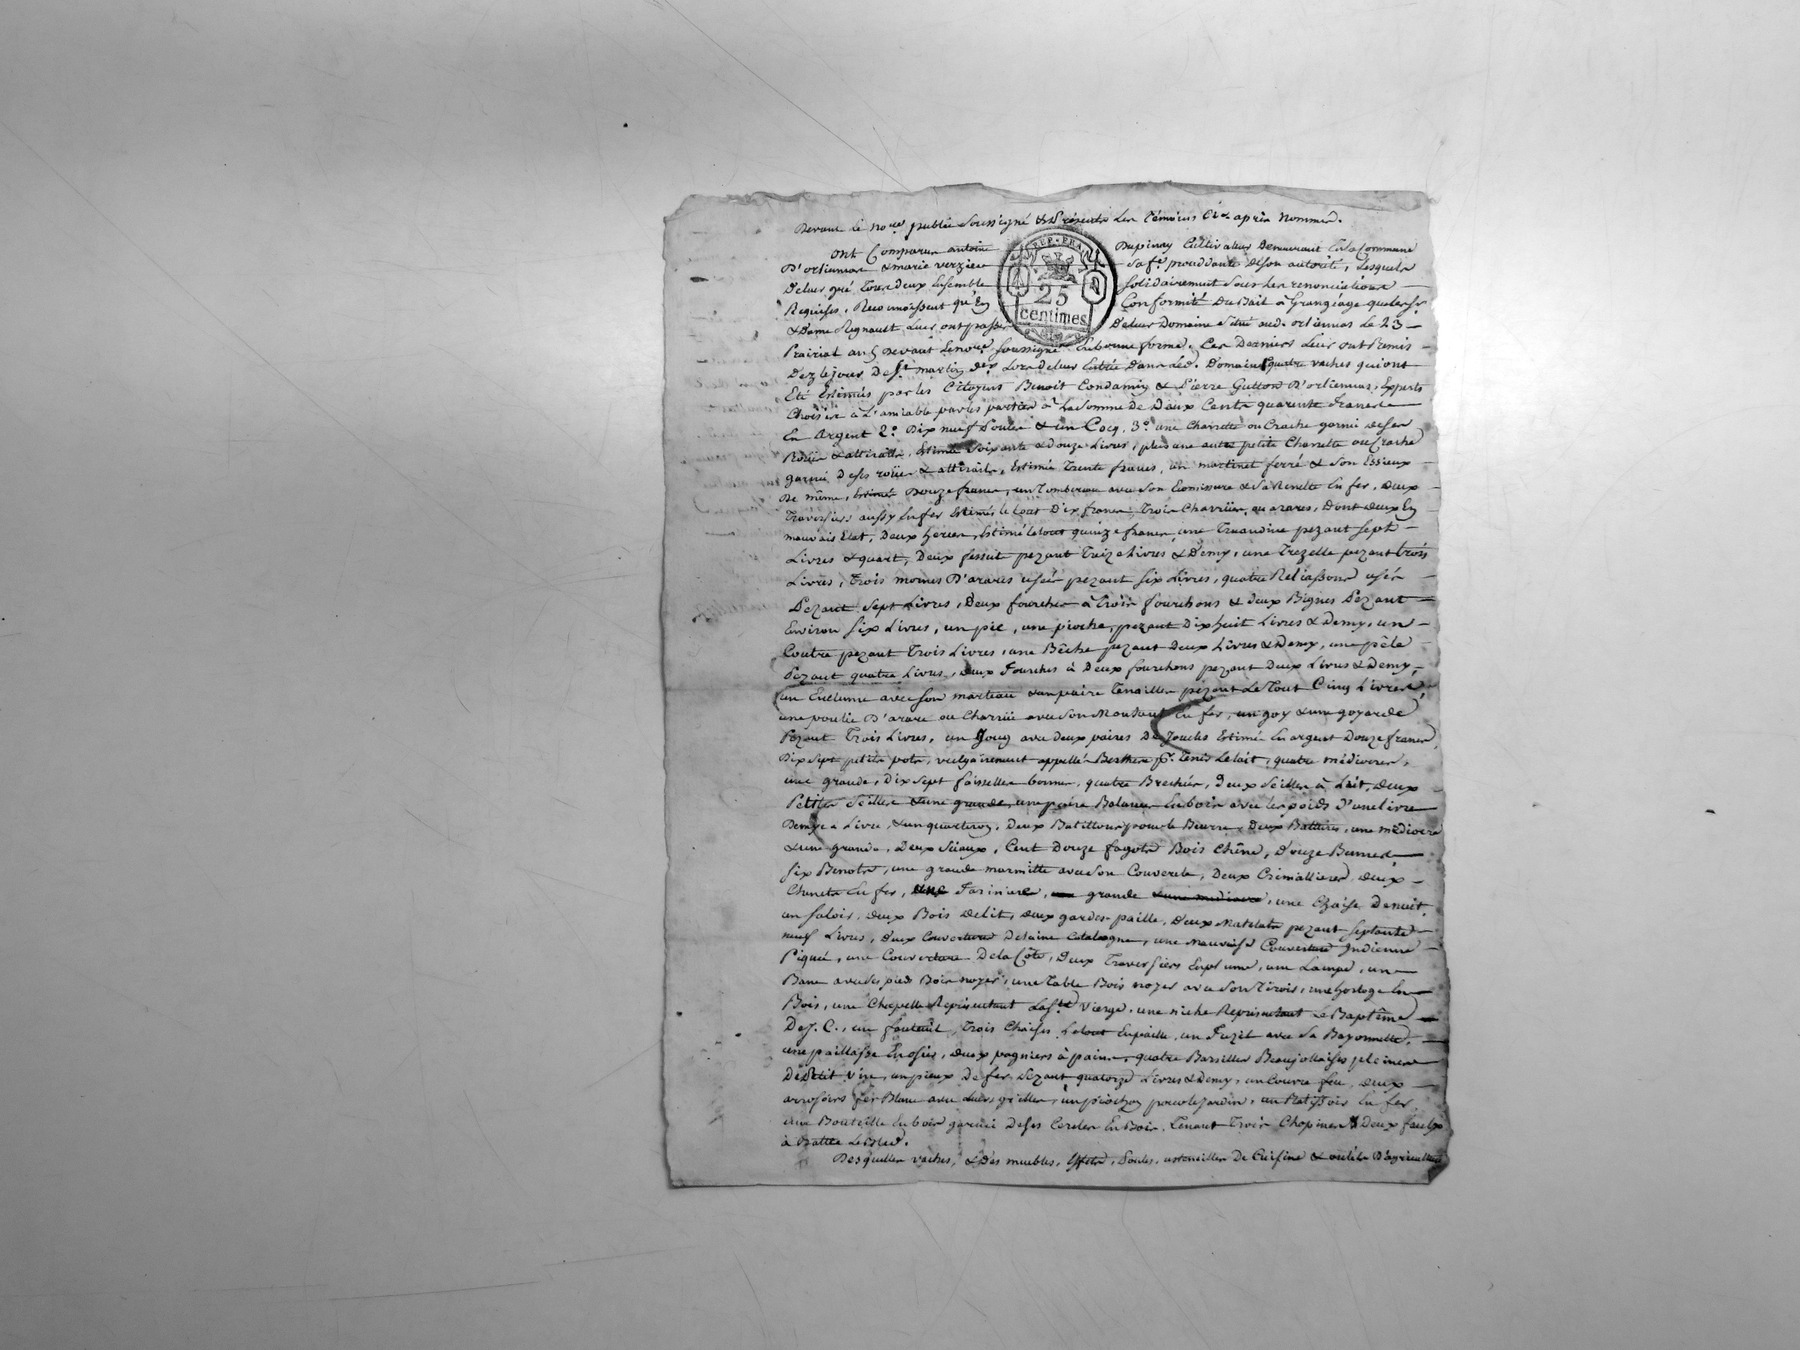 Devant le no.re public soussigné & Présents les témoins Ci-après nommés.
ont Comparus antoine Dupinay Cultivateur Demeurant en la Commune
D'orliennas & marie verzieu sa fe. procédante de son autorité, Lesquels
Delur gré Tous deux Ensemble solidairement sous les renonciations
Requises, Reconnoissent qu'En Conformité Du Bail à Grangéage que les Srs
& Dame Regnault Leur ont passé Deleur Domaine situé aud. orliennas le 23
Prairial an 9 Devant Le no.re soussigné En bonne forme, Ces Derniers Leur ont Remis
Dez le jour De st. martin der. Lors de leur Entrée Dans led. Domaine quatre vaches qui ont
Eté Estimés par les Citoyens Benoit Condamin & Pierre Gutton D'orliennas, Experts
Choisis à L'amiable par les parties à La somme de Deux Cents quarante francs
En Argent 2.° Dix neuf Poules & un Cocq, 3.° une Charrette ou Crache garni de ses
Roües & attirails, Estimée soixante & douze Livres, plus une autre petite Charrette ou Crache
garnie De ses roües & attirails, Estimée Trente francs, un martinet ferré & son Essieux
De même, Estimé Douze francs, un Tombereau avec son & sa en fer, deux
Traversiers aussy En fer Estimés le tout Dix francs, Trois Charrües, ou arares, Dont deux En
mauvais Etat, Deux herses, Estimé le tout quinze francs, une Truandine pezant sept
Livres & quart, Deux fessuit pezant Treize Livres & Demy, une Trezelle pezant trois
Livres, Trois moines D'arares usés pezant six Livres, quatre Reliassons usés
Pezant sept Livres, Deux fourches à Trois fourchons & deux Bignes Pezant
Environ six Livres, un pic, une pioche, pezant Dix huit Livres & Demy, un
Coutre pezant Trois Livres, une Bêche pezant Deux Livres & Demy, une pêle
Pezant quatre Livres, deux Fourches à Deux fourchons pezant Deux Livres & Demy,
un Enclume avec son marteau & un paire Tenailles pezant Le Tout Cinq Livres,
une poulie D'arare ou Charrüe avec son En fer, un goy & une goyarde
Pezant Trois Livres, un Joug avec deux paires De Joucles Estimé En argent Douze francs,
Dix sept petits pots, vulgairement appellé Berthes pr. Tenir Le lait, quatre médiocres,
une grande, Dix sept faisselles bonnes, quatre Brechés, Deux Seilles à Lait, deux
Petites Seilles & une grande, une paire Balances En bois avec les poids D'une livre
Demye Livre, & un quarteron, Deux Batillons pour le Beurre, Deux Battires, une médiocre
& une grande, Deux Séaux, Cent Douze fagots Bois Chêne, Douze Bennes,
six Benots, une grande marmitte avec son Couvercle, Deux Crémallieres, deux
Chenets En fer, une Farinière, grande, une Chaise Denuit,
un saloir, deux Bois Delit, deux gardes-paille, Deux Matelats pezant septante
neuf Livres, Deux Couvertures Delaine Catalogne, une Mauvaise Couverture Indienne
Piquée, une Couverture Dela Côte, Deux Traversiers En plume, une Lampe, un
Banc avec ses pieds Bois noyer, une Table Bois noyer avec son Tirois, une horloge En
Bois, une Chapelle Représentant La ste. Vierge, une niche Représentant Le Baptême
De J. C., un fauteuil, Trois Chaises Letout En paille, un Fuzil avec sa Bayonnette,
une paillasse En osier, deux pagniers à pain, quatre Barsilles Beaujollaises pleines
De Petit Vin, un pieux De fer Pezant quatorze Livres & Demy, un Couvre feu, deux
arrosoirs fer Blanc avec Leurs grilles, un piochon pour le Jardin, un Ratissoir En fer
une Bouteille En bois garnie De ses Cercles En Bois, Tenant Trois Chopines & Deux fleaux
à Battre Le Bled.
Desquelles vaches, & Des meubles, Effets, Poules, ustencilles De Cuisine & outils D'agriculture
REP. FRA.
25
centimes